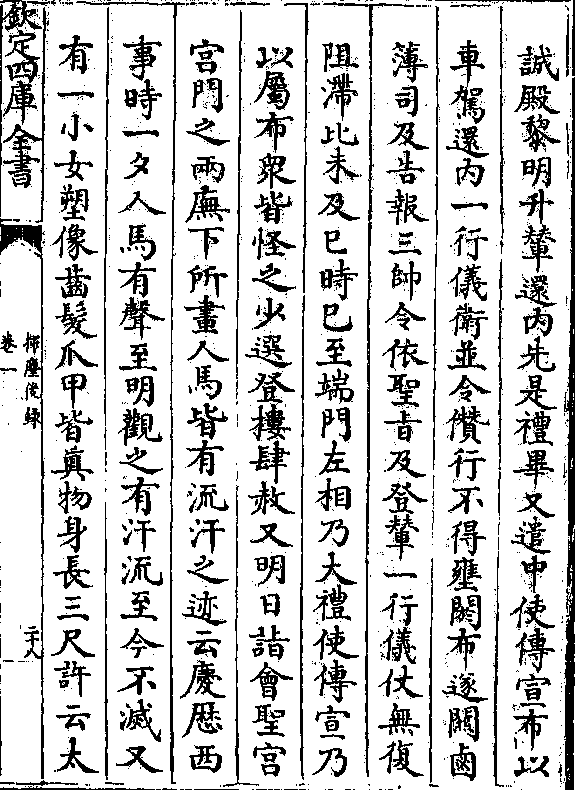 誠殿黎明升輦還內先是禮畢又遣中使傳宣布以
車駕還内一行儀衛並令儧行不得壅闕布遂關鹵
薄司及告報三帥令依聖旨及登輦一行儀仗無復
阻滯比未及巳時巳至端門左相乃大禮使傳宣乃
以屬布衆皆怪之少選登樓肆赦又明日詣會聖宮
宮門之兩廡下所畫人馬皆有流汗之迹云慶厯西
事時一夕人馬有聲至明觀之有汗流至今不滅又
有一小女塑像齒髮爪甲皆真物身長三尺許云太
欽定四庫全書
揮麈後録
卷一
二十八